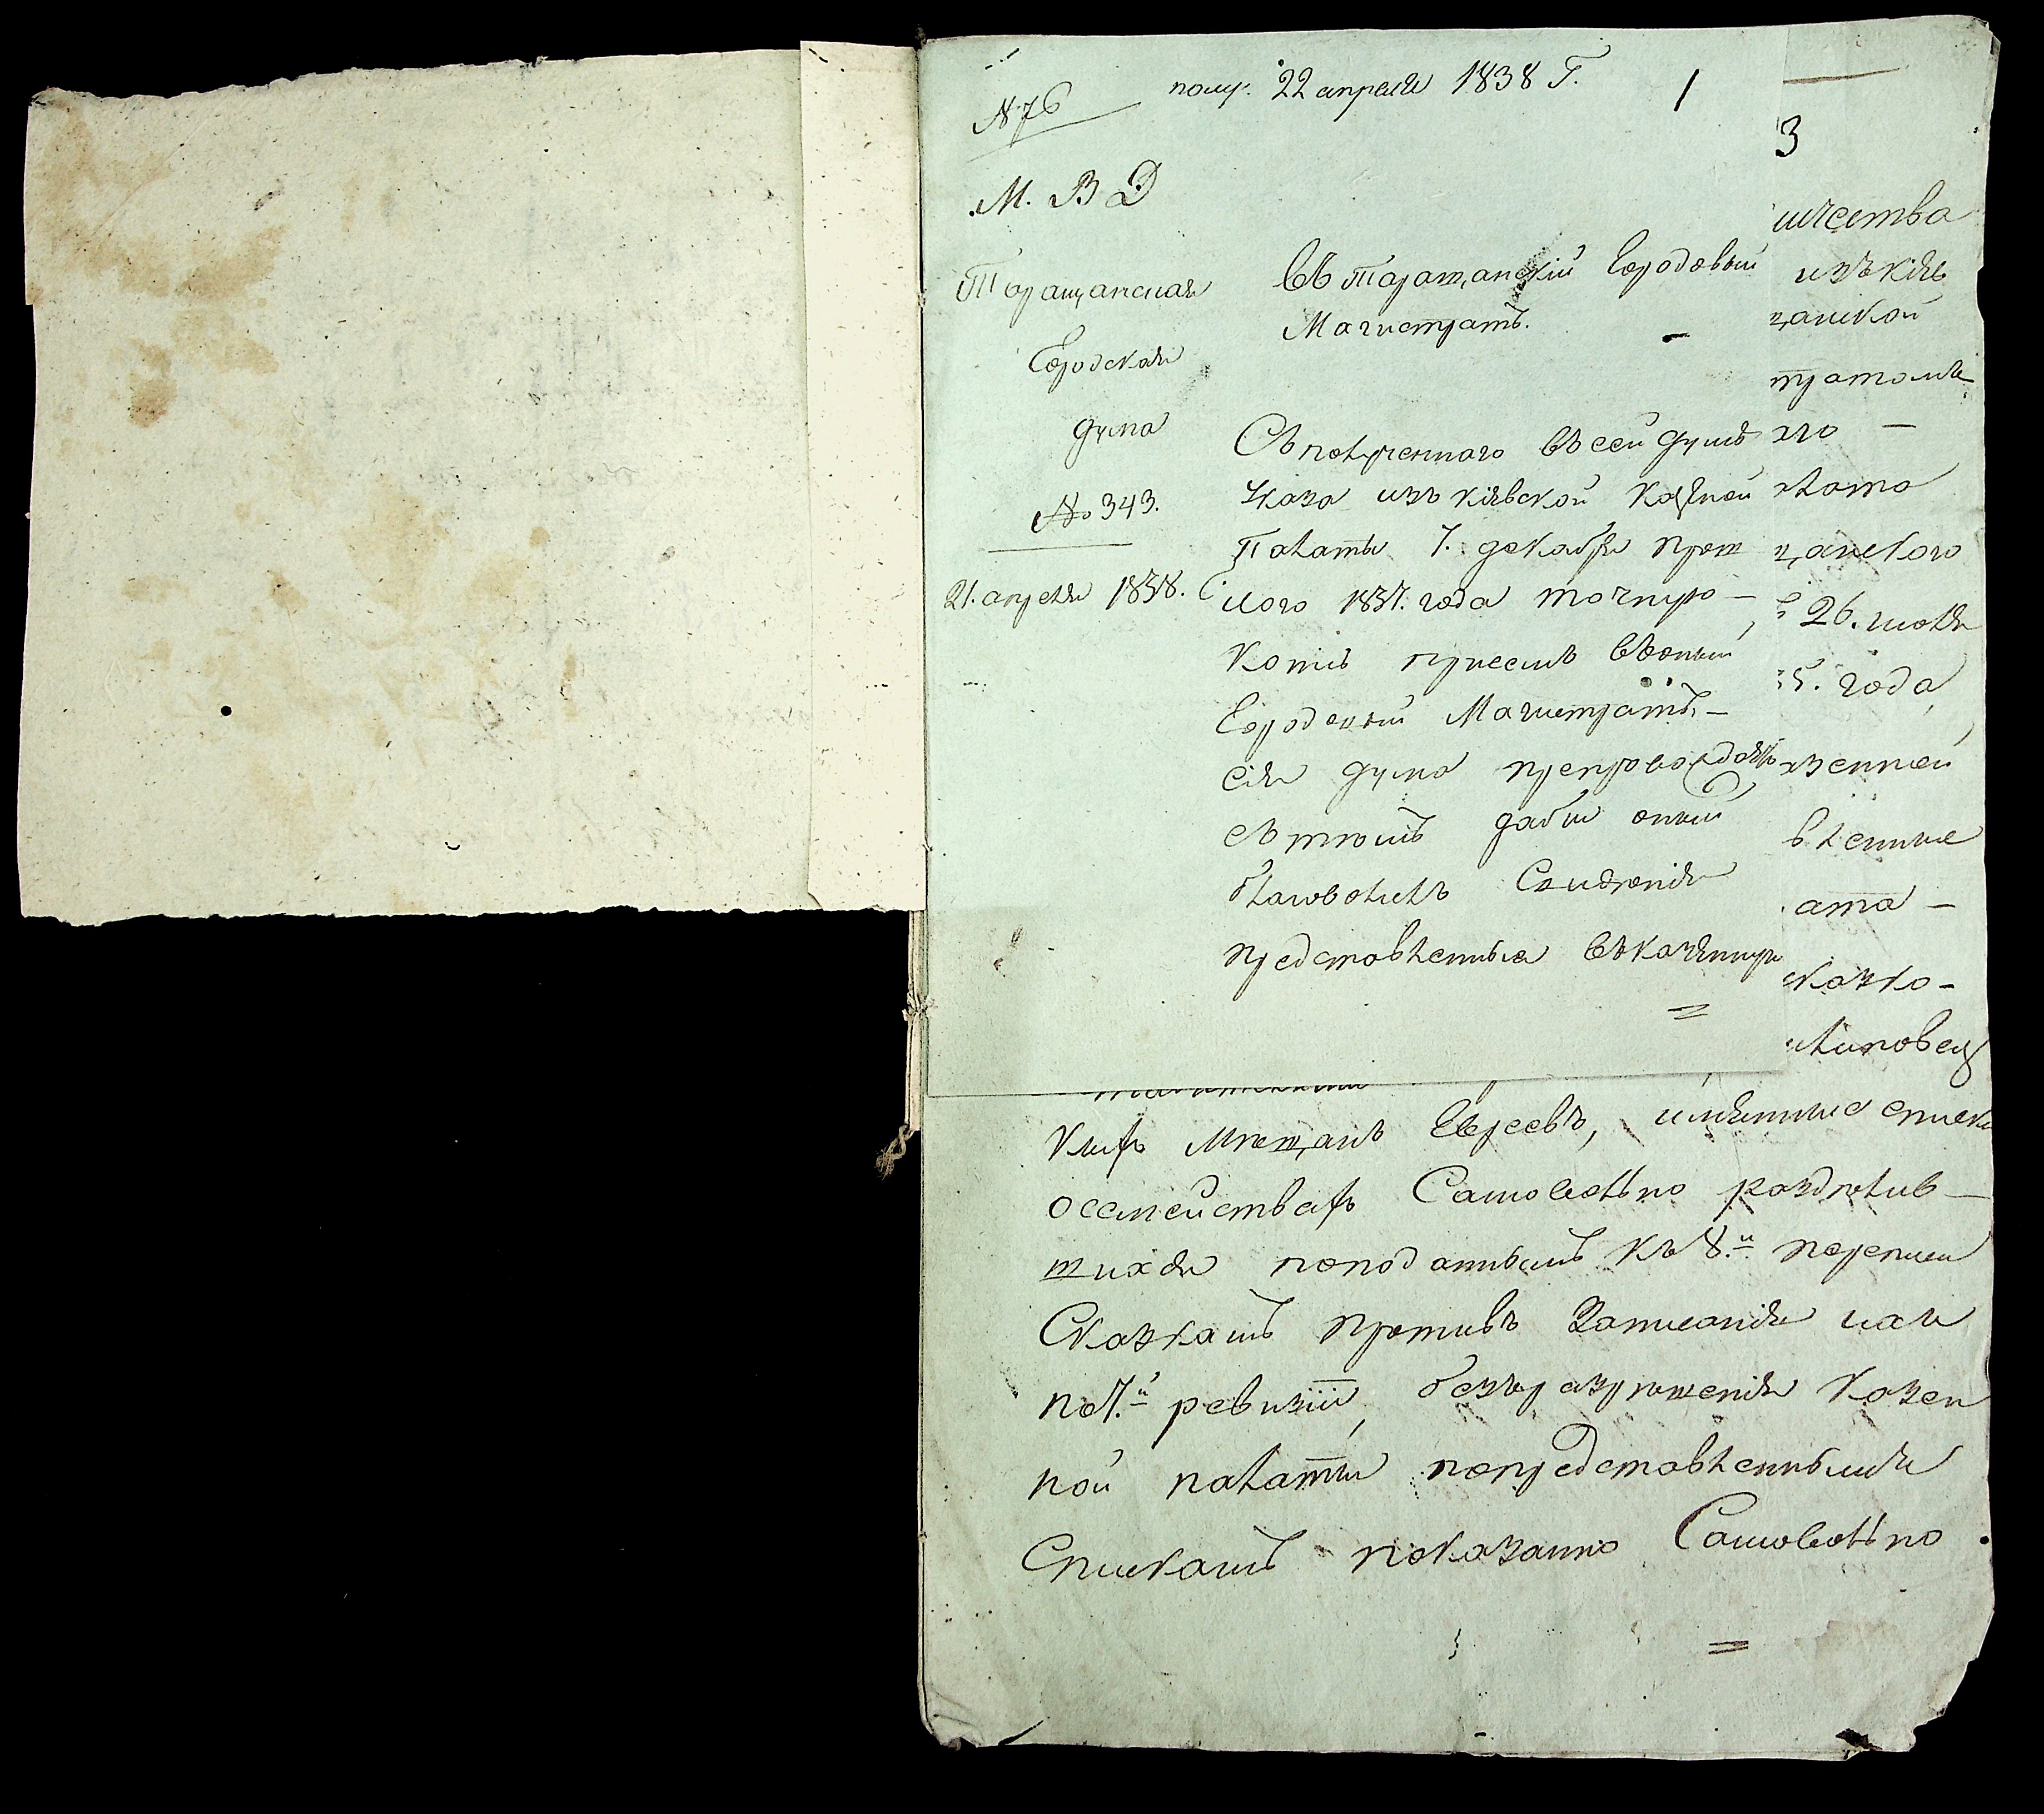 N 76
полу. 22 апреля 1838 Г.
1
М. В Д
Таращанская
Городская
дума
№ 343.
21. апреля 1838.
Въ Таращанскій Городовый
Магистратъ.
Съ полученнаго въ сей думѣ
Указа изъ кіевской Казеной
Палаты 7. декабря прош
лого 1837. года точную
Копію присемъ въ оный
Городовый Магистратъ
сія дума препровождаетъ
съ тѣмъ дабы оный
благоволилъ Сведенія
представленныя въ
3
ичества
изъ кіев
щанской
тратомъ
го
лата
щанского
26. июля
5. года
зенной
вленные
ата
сказко-
Липовец
кихъ Мѣщанъ Евреевъ, имянные списки
о семействахъ Самовольно раздѣлив
шихся по поданнымъ къ 8.й переписи
Сказкамъ противъ Записанія ихъ
по 7.й ревизіи, безъ разрѣшенія Казен
ной палаты по представленнымъ
Спискамъ показанно Самовольно